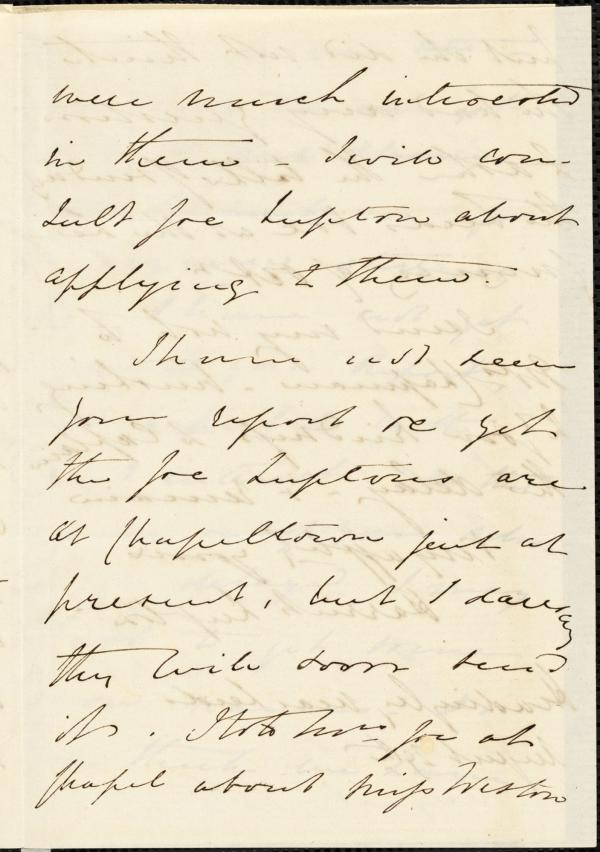 were much interested
in them - I will con-
sult Joe Lupton about
applying to them.
I have not seen
your report as yet
the Joe Luptons are
at Chapeltown just at
present, but I daresay
they will soon send
it. I told Mrs Joe at
Chapel about Miss Weston